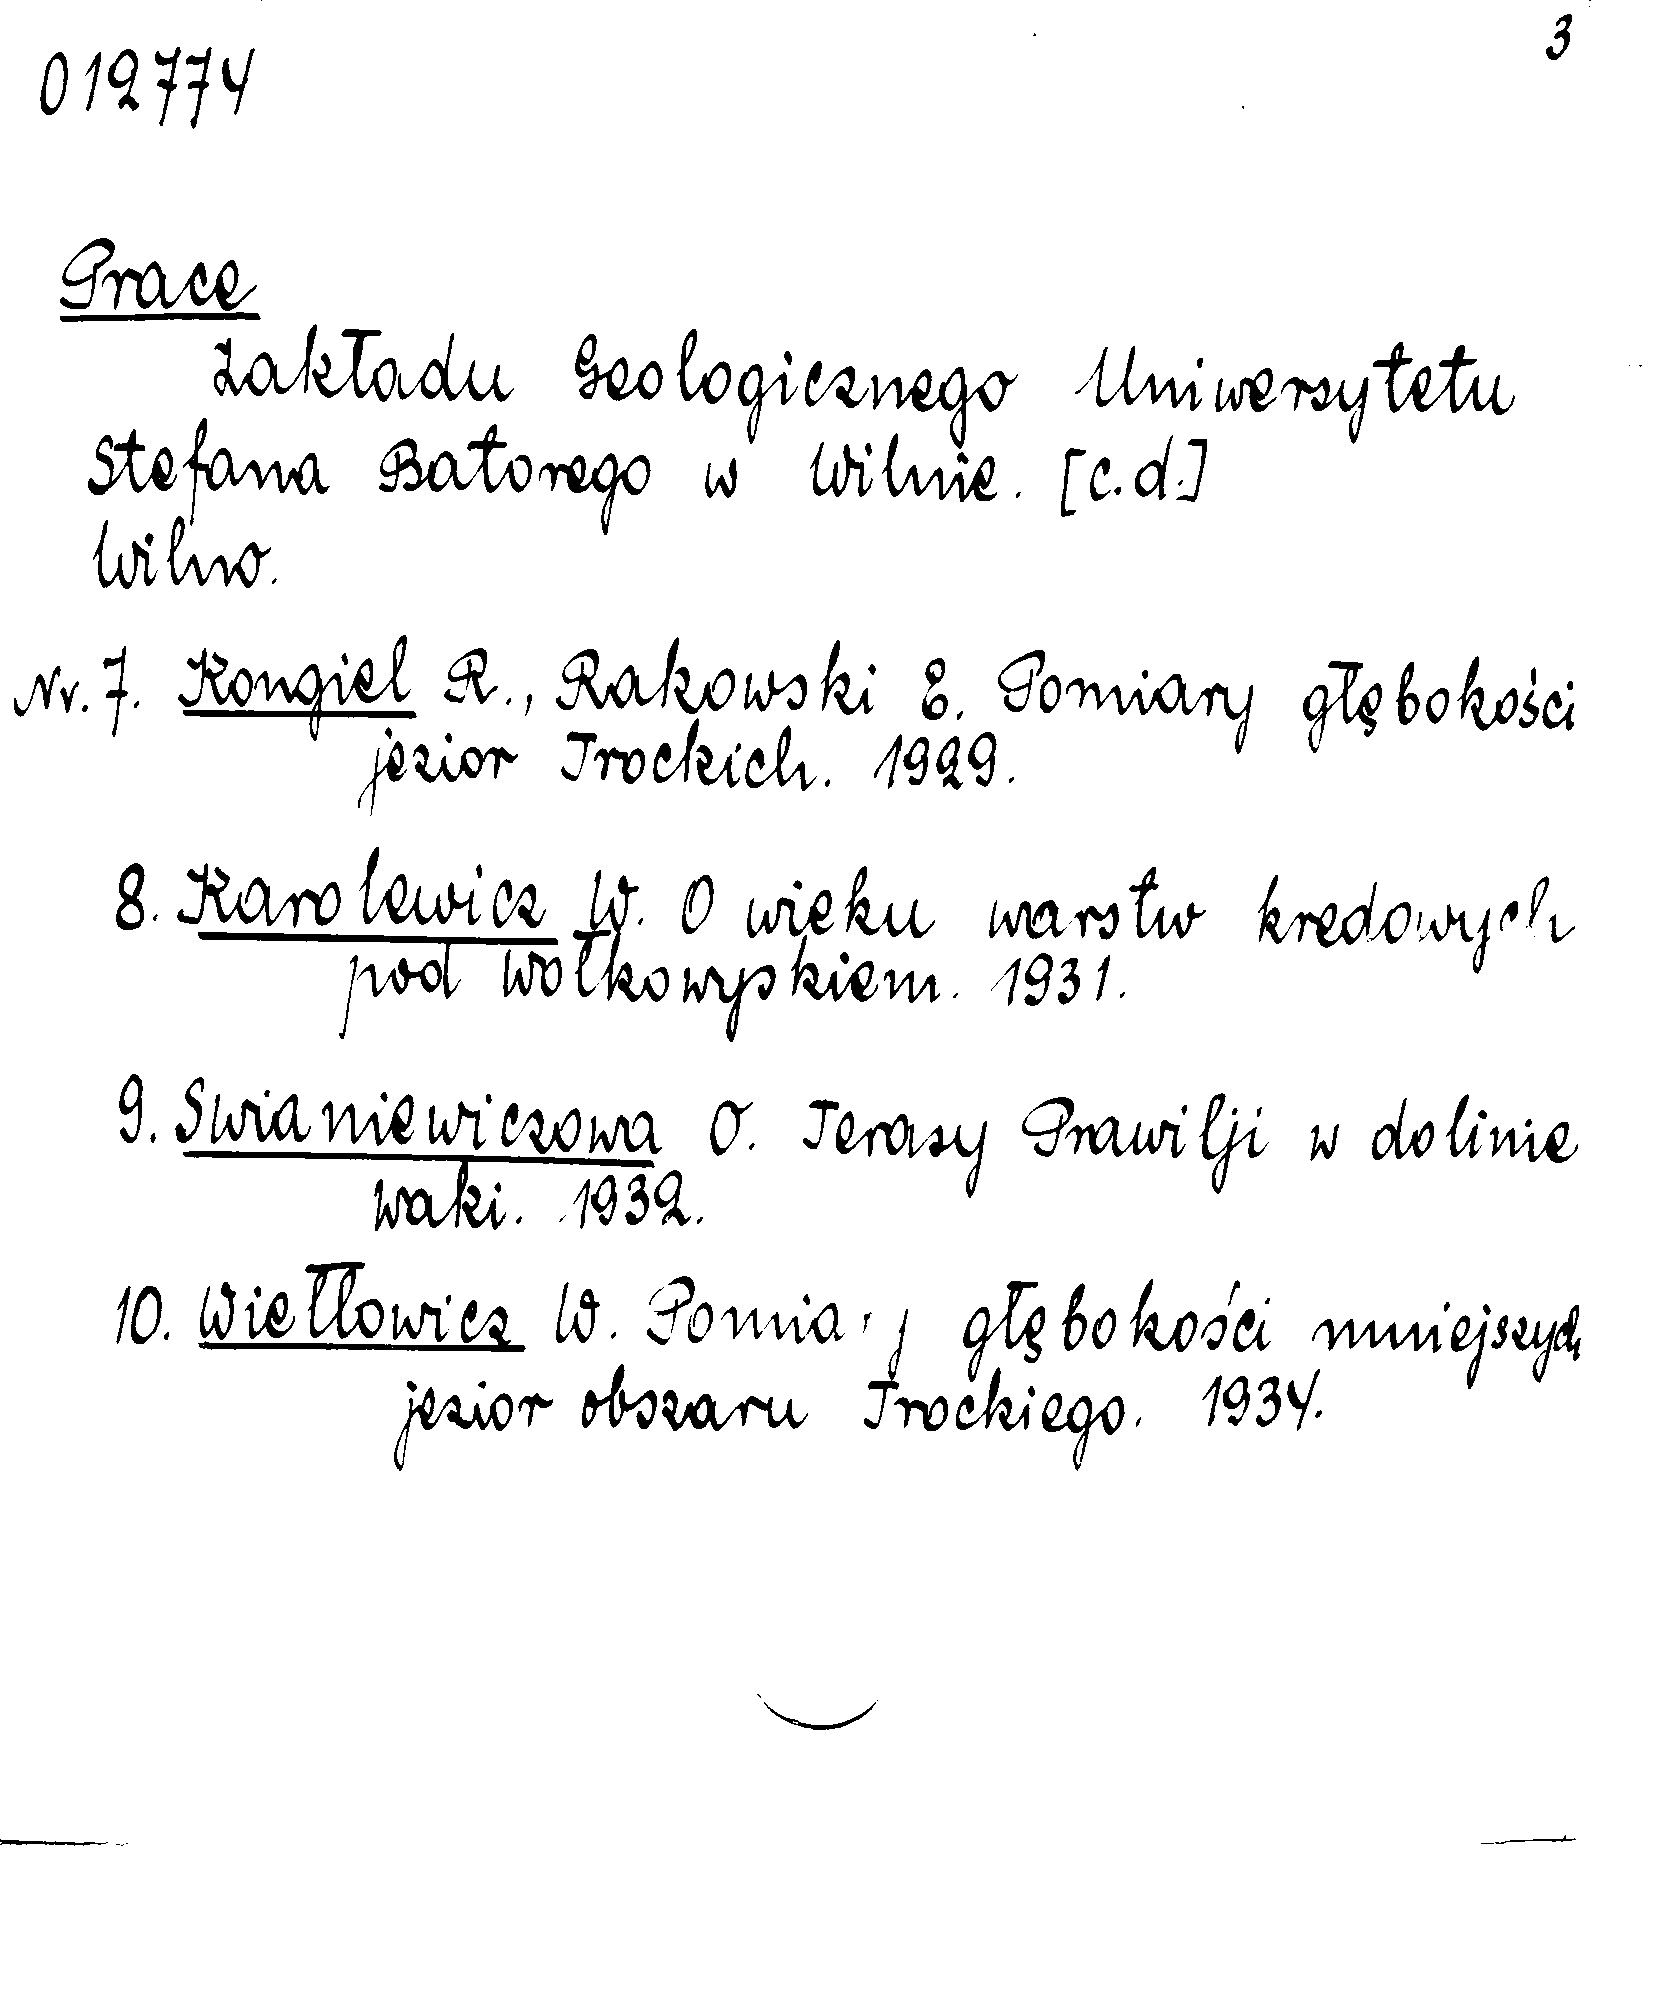 3
012774
Prace
Zakładu Geologicznego Uniwersytetu
Stefana Batorego w Wilnie. [c.d.]
Wilno.
Nr. 7. Kongiel R., Rakowski E. Pomiary głębokości
jezior Trockich. 1929.
8. Karolewicz W. O wieku warstw kredowych
pod Wołkowyskiem. 1931.
9. Swianiewiczowa O. Terasy Prawilji w dolinie
Waki. 1932.
10. Wiełłowicz W. Pomiary głębokości mniejszych
jezior obszaru Trockiego. 1934.